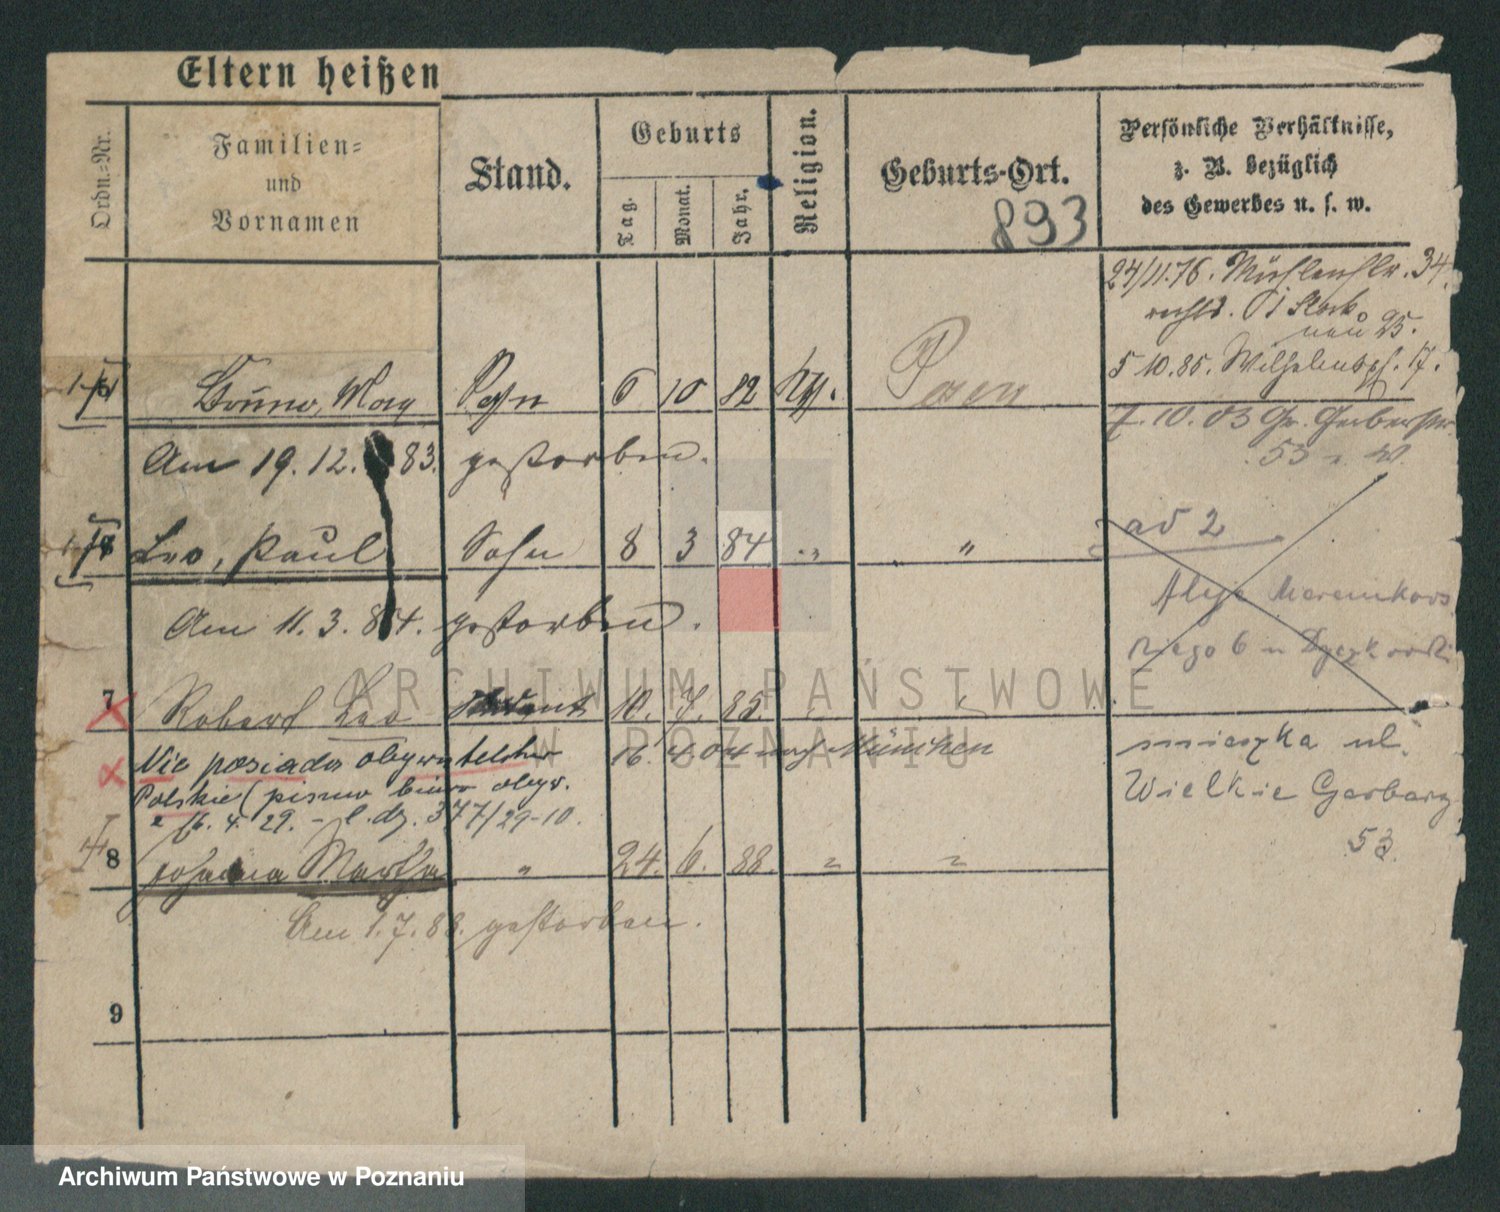 Eltern heißen
Ordn.-Nr.
Familien-
und
Vornamen
Stand.
Geburts
Tag.
Monat.
Jahr.
Religion.
Geburts-Ort.
893
Persönliche Verhältnisse,
z. B. bezüglich
des Gewerbes u. s. w.
24/11.76. Mühlenstr. 34.
rechts. I Stock
neu 25.
5 10.85. Wilhelmspl. 17.
Bruno, Max Sohn 6 10 82 Posen
7.10.03 Gr. Gerberstr.
53
Am 19. 12. 83. gestorben.
Leo, Paul Sohn 8 3 84 " "
ad 2
Am 11. 3. 84. gestorben.
7 Robert Leo Student 10. 7. 85.
Nie posiada obywatelstwa
16. 4 04 nach München
Polskie (pismo biura obyw.
z 16. 4. 29. – l. dz. 377/29-10.
mieszka ul.
Wielkie Garbary
53.
8 Johanna Martha " 24. 6. 88. " "
Am 1. 7. 88. gestorben.
9
ARCHIWUM PAŃSTWOWE
W POZNANIU
Archiwum Państwowe w Poznaniu